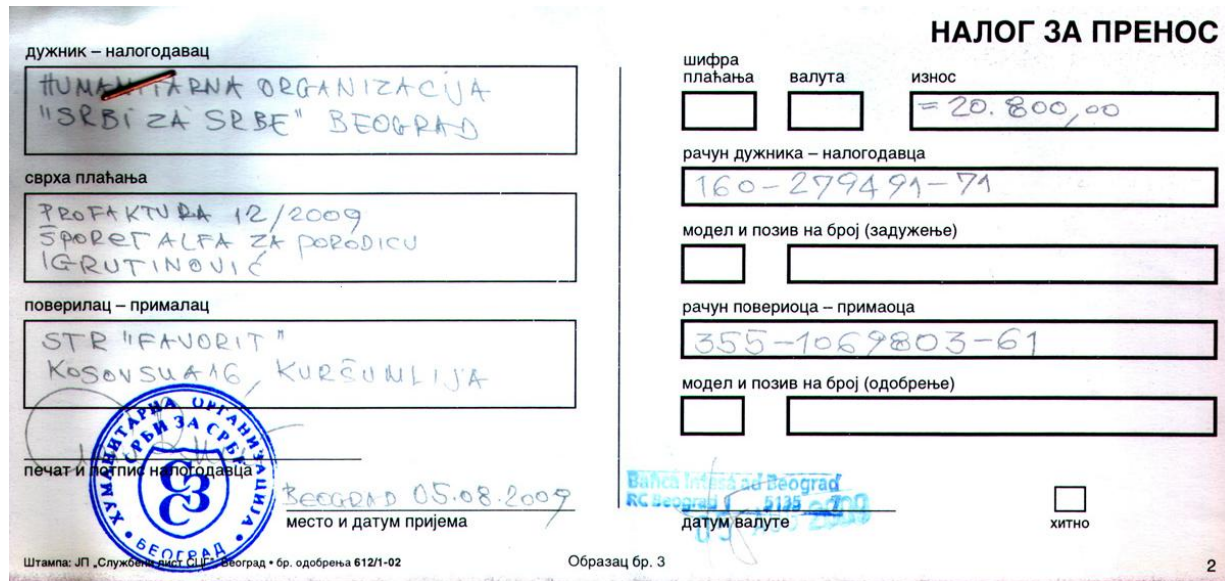 НАЛОГ ЗА ПРЕНОС
дужник – налогодавац
HUMANITARNA ORGANIZACIJA
"SRBI ZA SRBE" BEOGRAD
сврха плаћања
PROFAKTURA 12/2009
ŠPORET ALFA ZA PORODICU
IGRUTINOVIĆ
поверилац – прималац
STR "FAVORIT"
KOSOVSKA 16, KURŠUMLIJA
ХУМАНИТАРНА ОРГАНИЗАЦИЈА
СРБИ ЗА СРБЕ
БЕОГРАД
печат и потпис налогодавца
BEOGRAD 05.08.2009
место и датум пријема
Штампа: ЈП „Службени лист СЦГ“ Београд • бр. одобрења 612/1-02
шифра
плаћања валута износ
= 20.800,00
рачун дужника – налогодавца
160-279491-71
модел и позив на број (задужење)
рачун повериоца – примаоца
355-1069803-61
модел и позив на број (одобрење)
Banca Intesa ad Beograd
RC Beograd 1 5135 7
датум валуте
хитно
Образац бр. 3
2